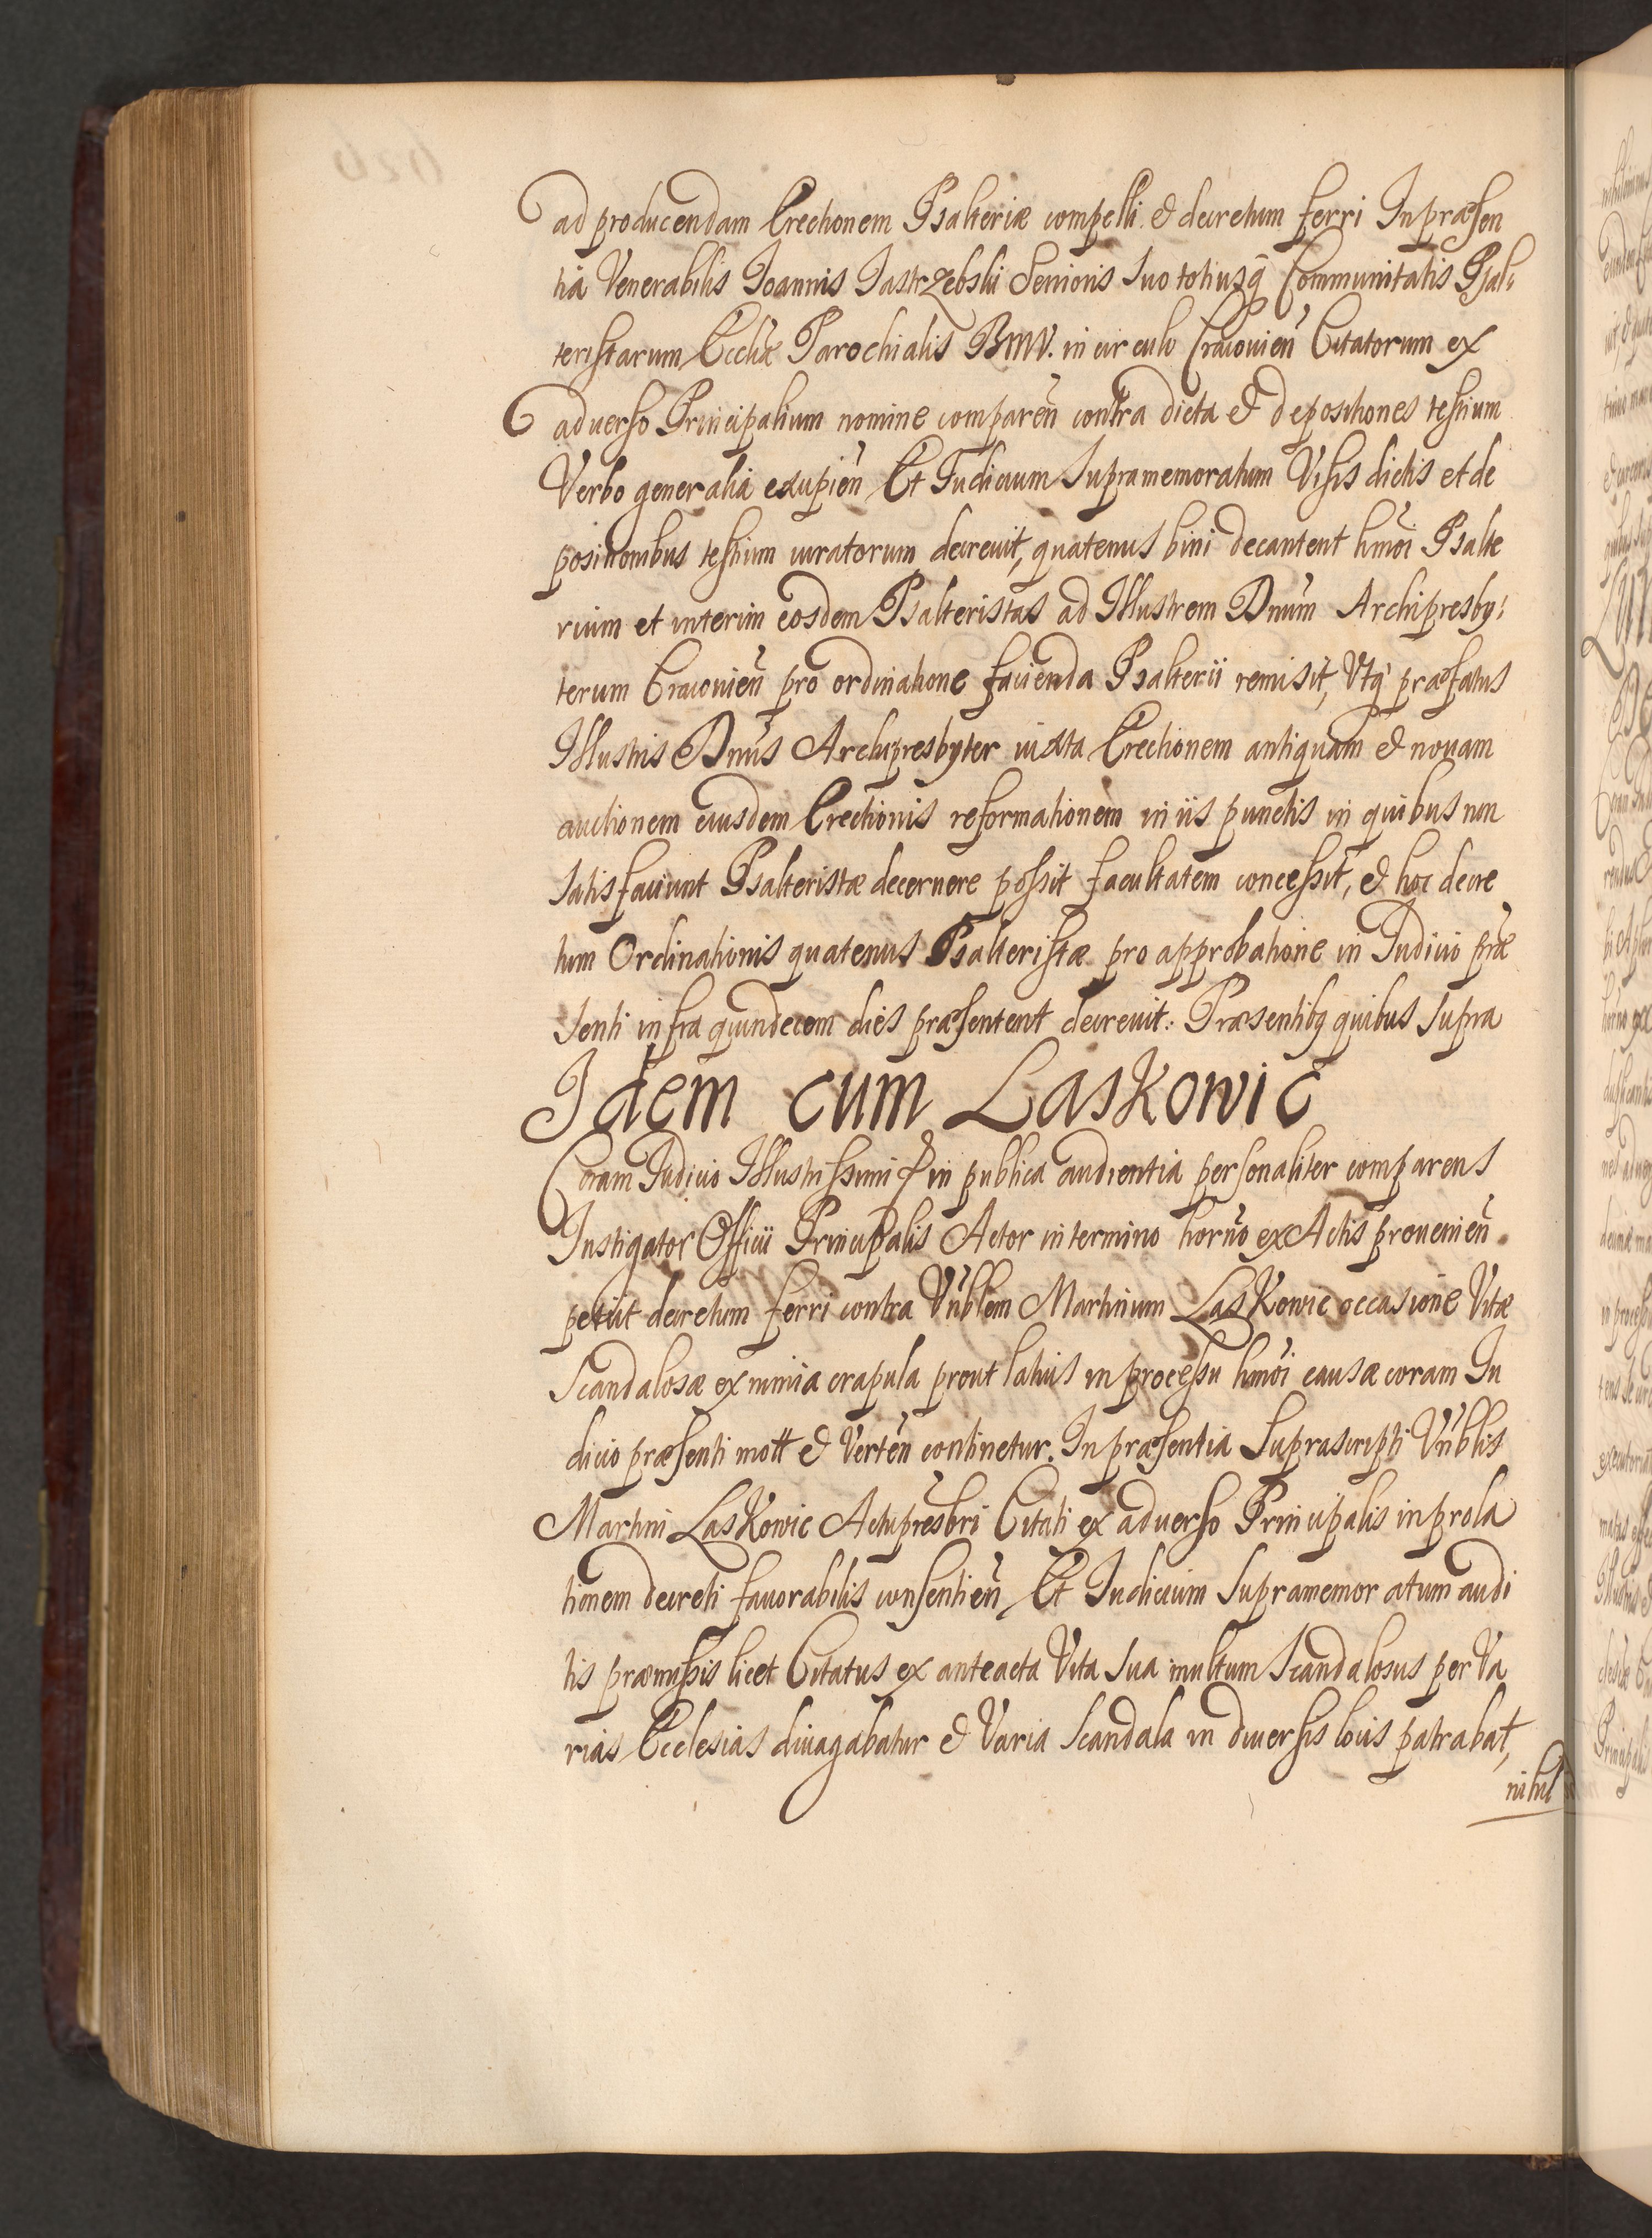 ad producendam Erectionem Psalteriæ compelli & decretum ferri In præsen
tia Venerabilis Joannis Jastrzebski Senioris suo totiusq̃ Communitatis Psal:
teristarum Eccliæ Parochialis BMV. in circulo Cracovien̄ Citatorum ex
adverso Principalium nomine comparen̄ contra dicta & depositiones testium
Verbo generalia excipien̄ Et Judicium supramemoratum Visis dictis et de
positionibus testium iuratorum decrevit, quatenus bini decantent hmōi Psalte
rium et interim eosdem Psalteristas ad Illustrem Dnūm Archipresby:
terum Cracovien̄ pro ordinatione facienda Psalterii remisit, Utq̃ præfatus
Illustris Dnūs Archipresbyter iuxta Erectionem antiquam & novam
auctionem eiusdem Erectionis reformationem in iis punctis in quibus non
satisfaciunt Psalteristæ decernere possit facultatem concessit, & hoc decre
tum Ordinationis quatenus Psalteristæ pro approbatione in Judicio præ
senti infra quindecem dies præsentent decrevit: Præsentibq quibus supra
Idem cum Laskowic
Coram Judicio Illustrissimi & in publica audientia personaliter comparens
Instigator Officii Principalis Actor in termino horno ex Actis provenien̄
petiit decretum ferri contra Vnblem Martinum Laskowic occasione Vitæ
Scandalosæ ex nimia crapula prout latius in processu hmōi causæ coram Ju
dicio præsenti mott & Verten̄ continetur. In præsentia Suprascripti Vnblis
Martini Laskowic Actupresbri Citati ex adverso Principalis in prola
tionem decreti favorabilis consentien̄ Et Judicium supramemoratum audi
tis præmissis licet Citatus ex anteacta Vita sua multum Scandalosus per Va
rias Ecclesias divagabatur & Varia Scandala in diversis locis patrabat,
nihil